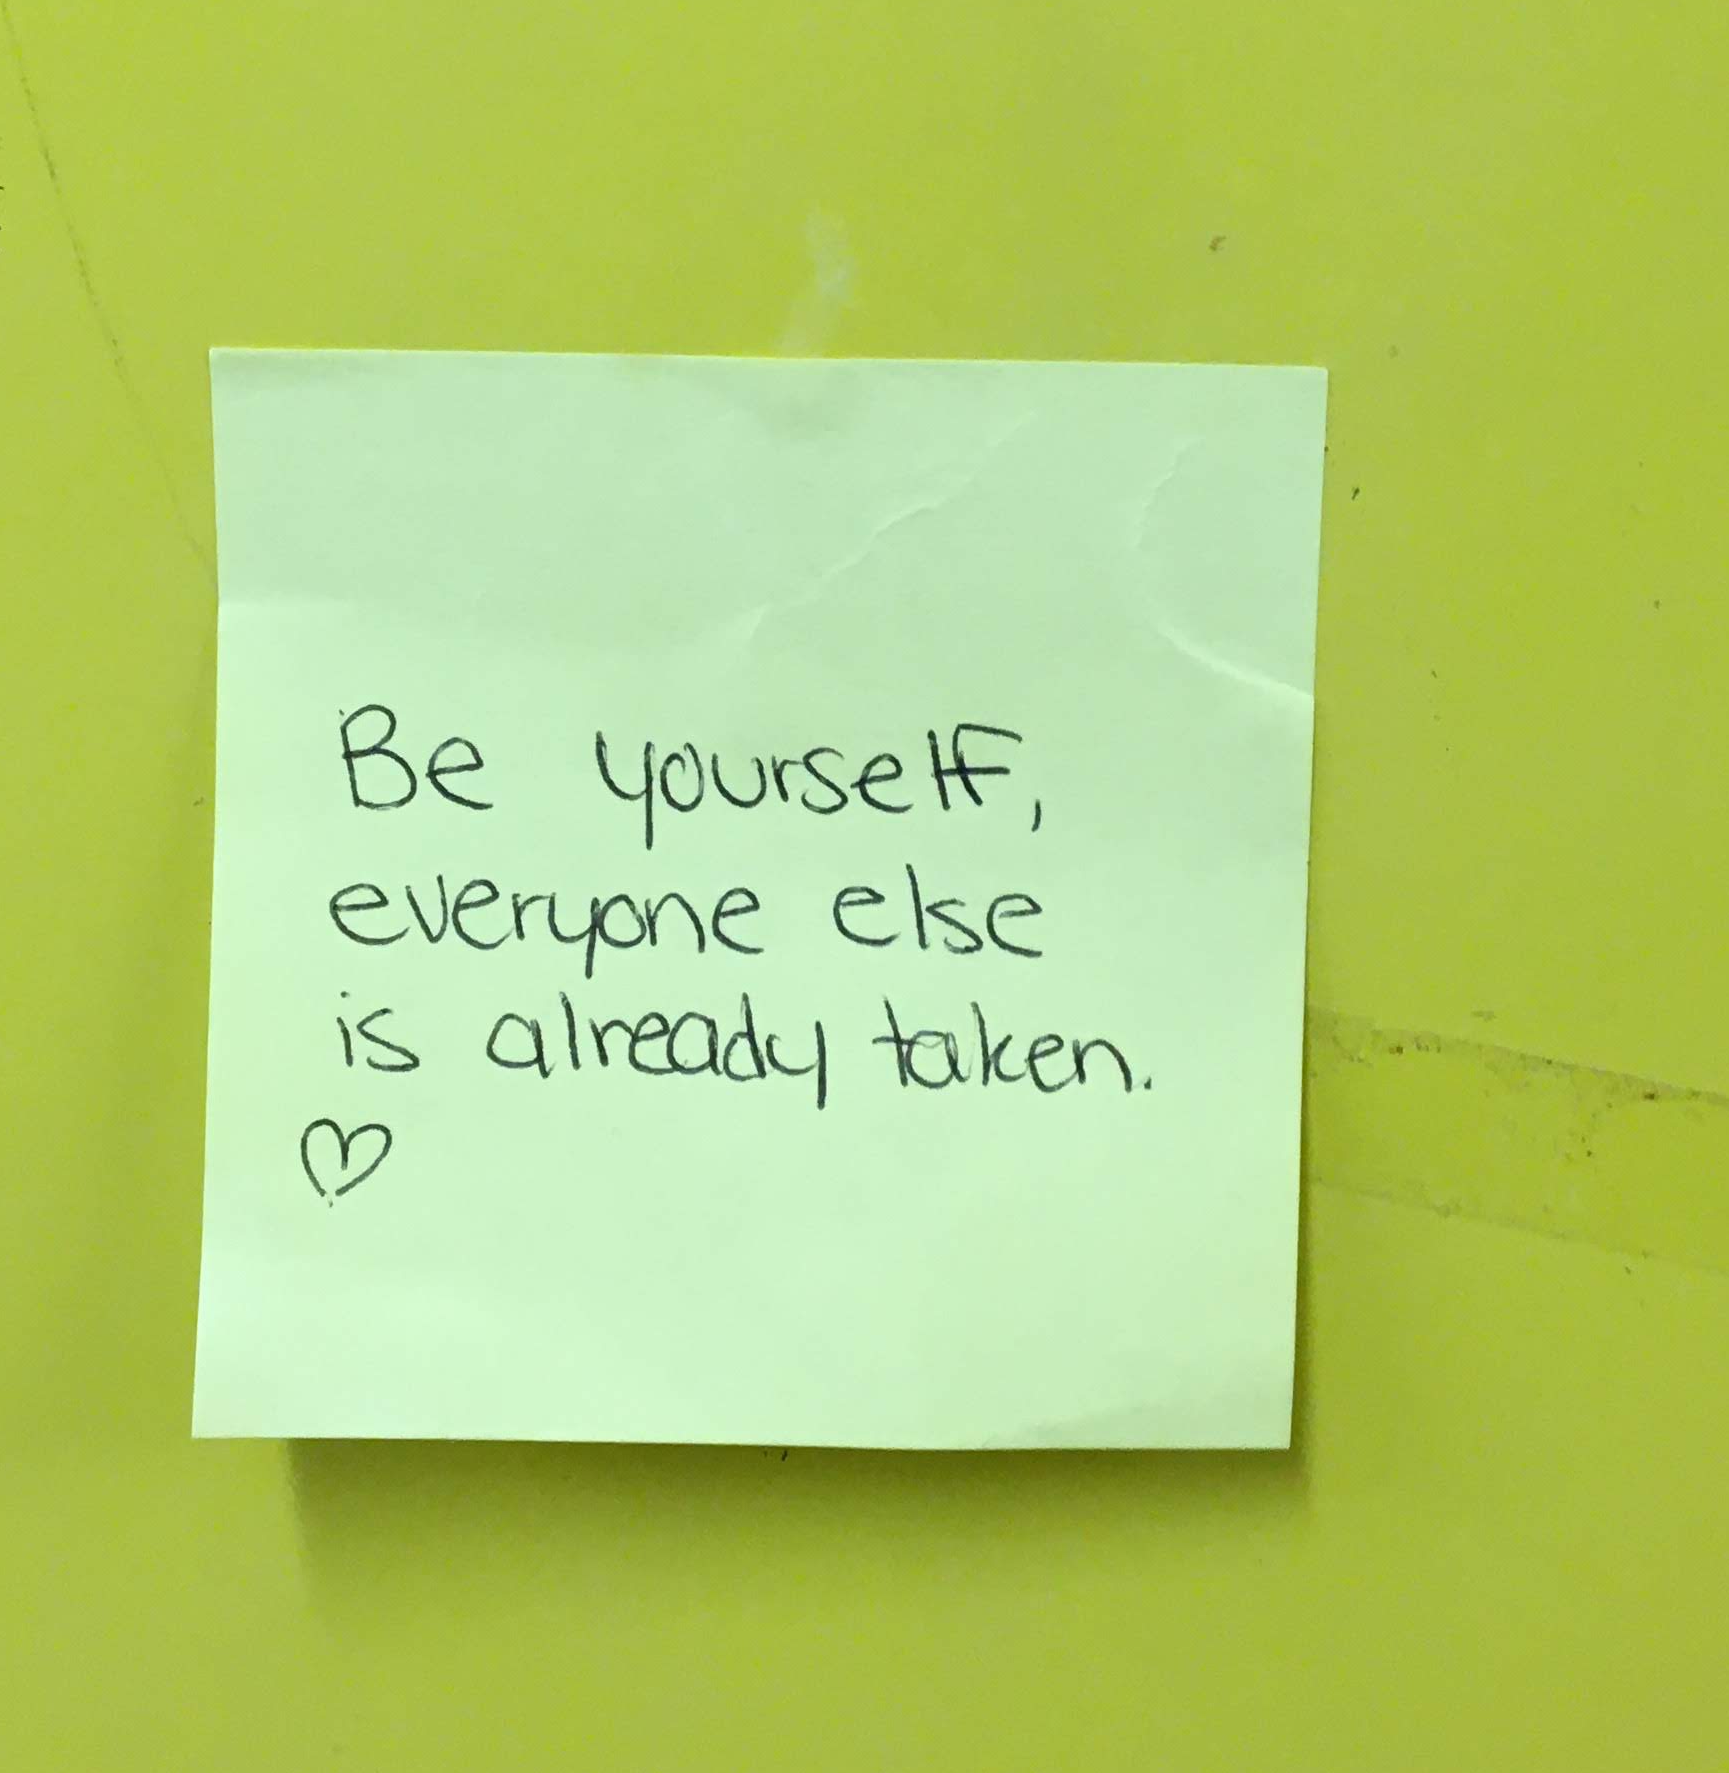 Be yourself,
everyone else
is already taken.
♡